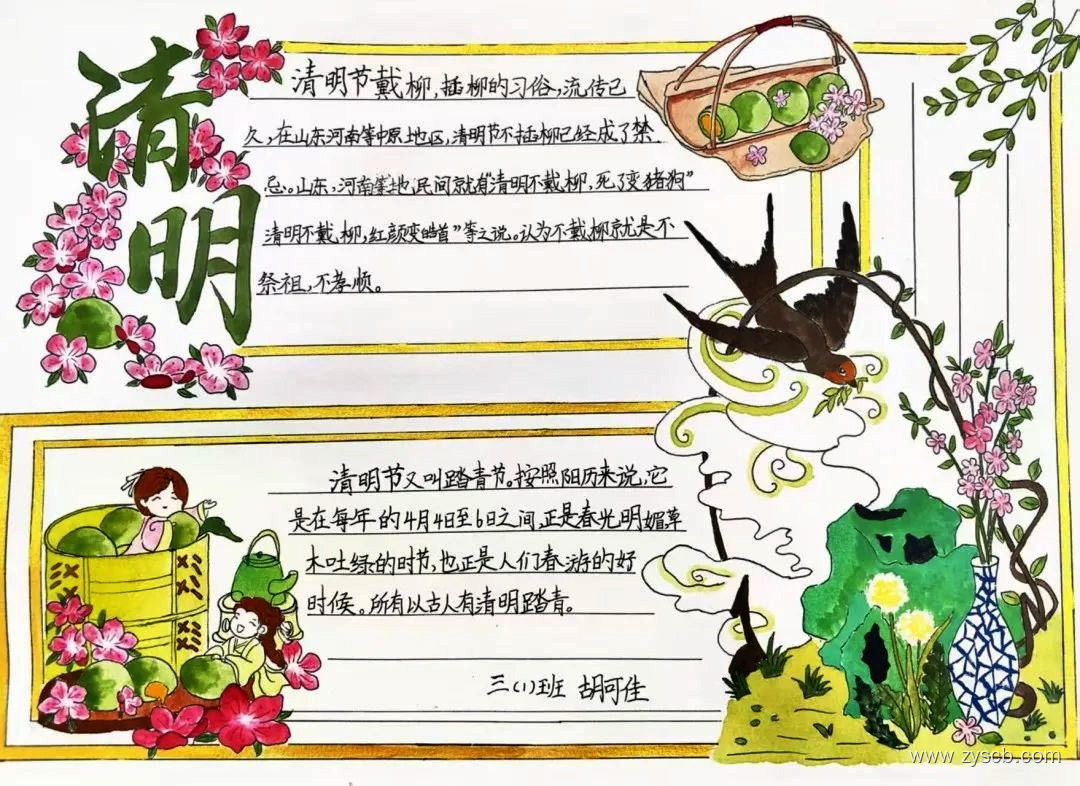 清明
清明节戴柳,插柳的习俗,流传已
久,在山东河南等中原地区,清明节不插柳已经成了禁
忌。山东,河南等地民间就有"清明不戴柳,死了变猪狗"
清明不戴柳,红颜变皓首"等之说。认为不戴柳就是不
祭祖,不孝顺。
清明节又叫踏青节。按照阳历来说,它
是在每年的4月4日至6日之间,正是春光明媚草
木吐绿的时节,也正是人们春游的好
时候。所有以古人有清明踏青。
三(1)班 胡可佳
www.zyscb.com